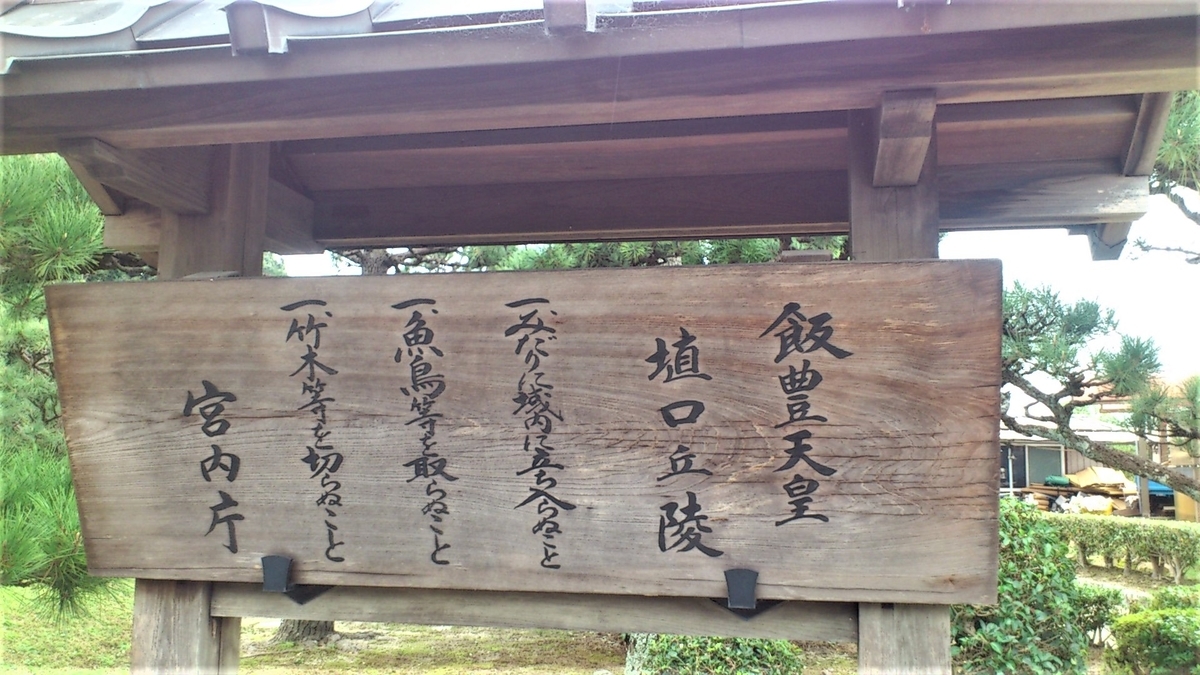 飯豊天皇
埴口丘陵
一、みだりに域内に立ち入らぬこと
一、魚鳥等を取らぬこと
一、竹木等を切らぬこと
宮内庁